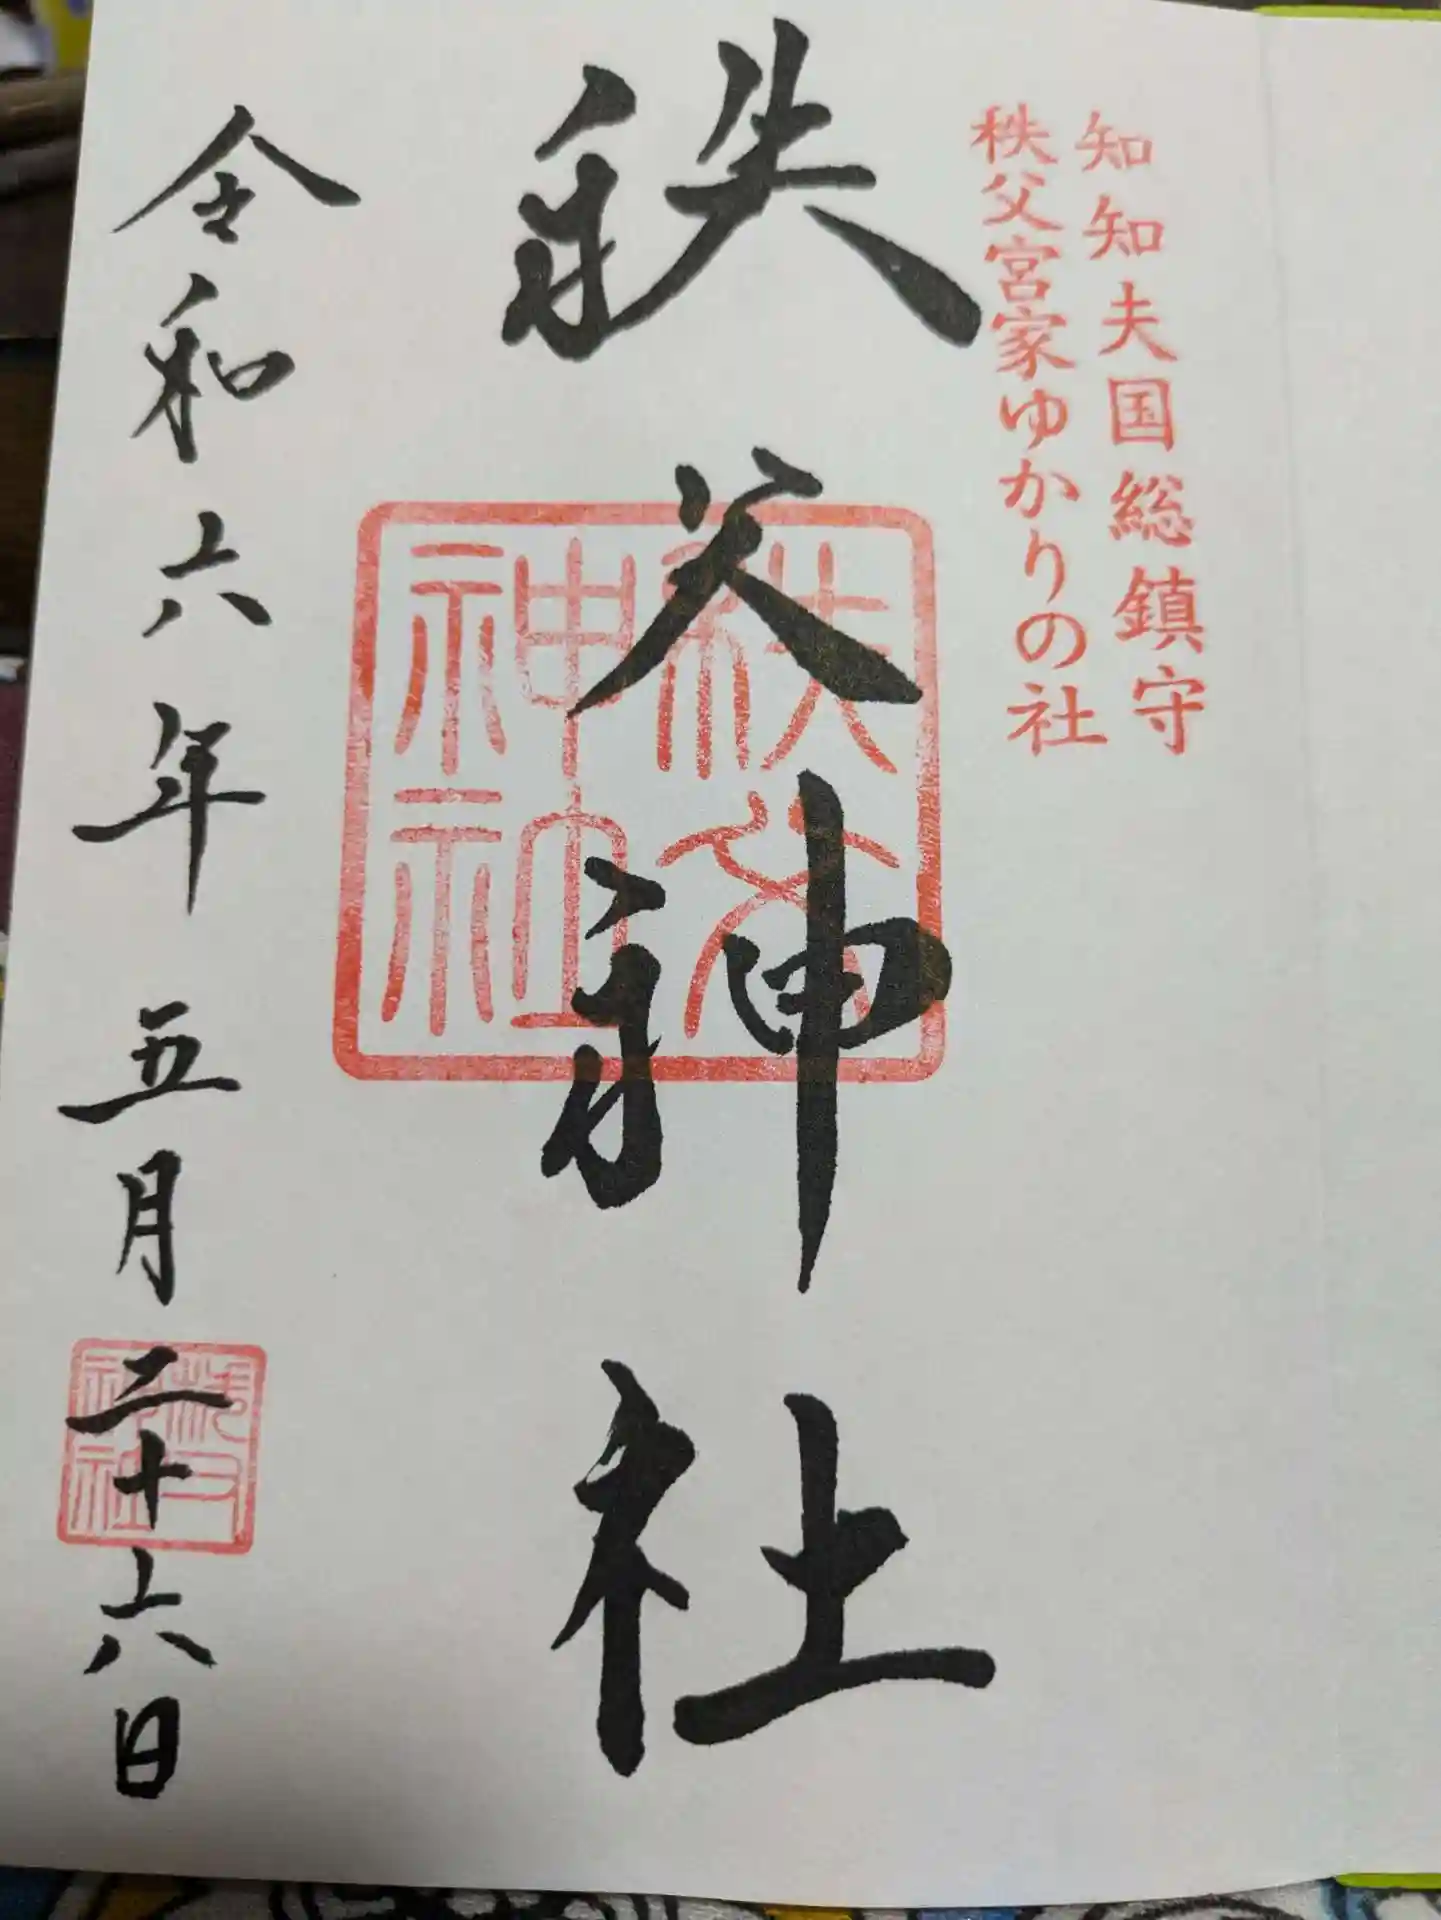 知知夫国総鎮守
秩父宮家ゆかりの社
秩父神社
秩父
神社
令和六年五月二十六日
秩父
神社